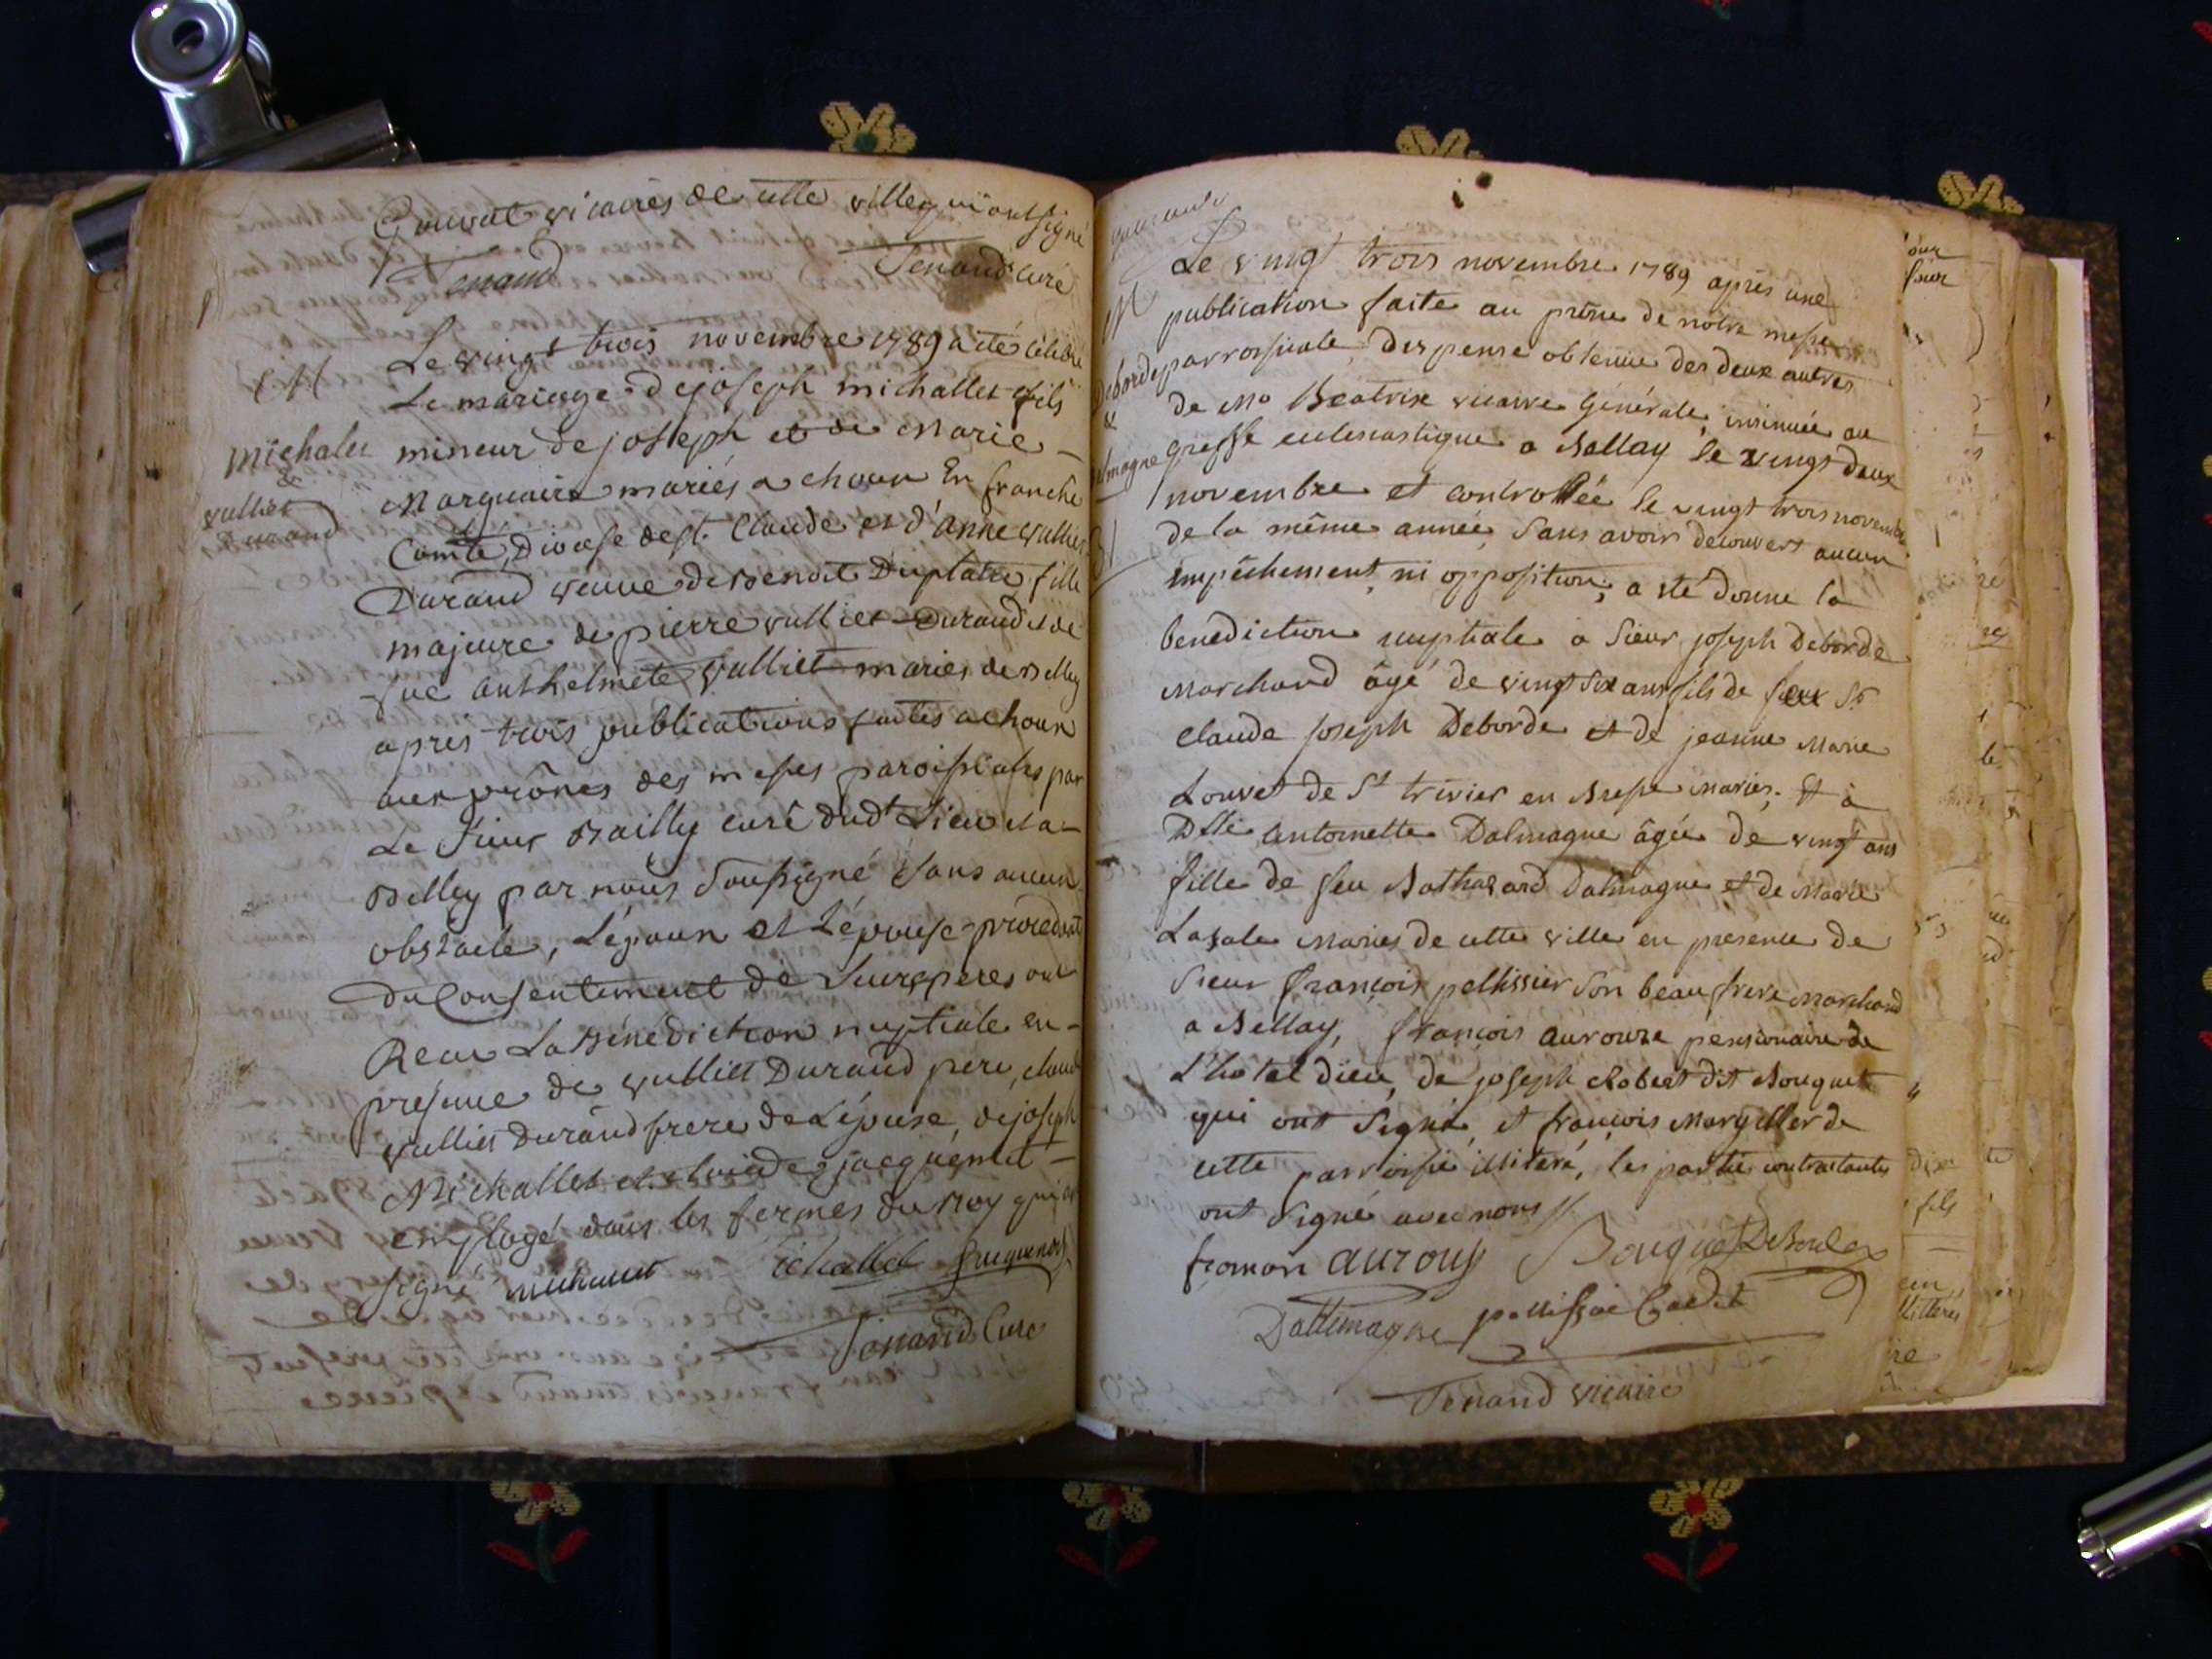 vicaires de cette ville qui ont signé
Tenand
Tenand curé
Le vingt trois novembre 1789 a été célébré
M
Le mariage de joseph michallet fils
michalet
mineur de joseph et de Marie
&
vulliet
Durand
mariés a choux En franche
Comté, Diocese de St. Claude et d'anne vulliet
Durand veuve de Benoit Duplatre, fille
majeure de pierre vulliet Durand et de
feue anthelmete vulliet mariés de Belley
apres trois publications faites a choux
aux prônes des messes paroissiales par
Le sieur Bailly curé dudt Lieu et a
Belley par nous Soussigné sans aucun
obstacle, L'époux et L'épouse procedant
du Consentement de Leurs peres ont
Recu La Bénédiction nuptiale en
présence de vulliet Durand pere, claude
vulliet Durand frere de L'épouse, de joseph
Michallet et claude jacquemet
employé dans les fermes du Roy qui ont
signé michallet
Tenand Curé
Le vingt trois novembre 1789 après une
M
publication faite au prône de notre messe
Deborde
parroissiale, dispense obtenue des deux autres
&
de Mr Béatrix vicaire Générale, insinuée au
Dalmagne
Greffe eclesiastique a Bellay le vingt deux
novembre et controllée le vingt trois novembre
de la même année, Sans avoir découvert aucun
empêchement, ni opposition; a été donné la
bénédiction nuptiale a Sieur joseph Deborde
Marchand âgé de vingt six ans fils de feux Sr
Claude joseph Deborde et de jeanne Marie
Louvet de St trivier en Bresse Mariés; Et à
Dlle antoinette Dalmagne âgée de vingt ans
fille de feu Balthazard Dalmagne et de Marie
Lasale Mariés de cette ville en présence de
Sieur françois pellissier Son beau frere Marchand
a Bellay, françois aurouze pensionaire de
L'hôtel dieu, de joseph Robert dit Bouquet
qui ont Signé, et françois Margillier de
cette parroisse illiteré, les partie contractantes
ont Signé avec nous
fromon aurouz Bouquet Deborde
Dallemagne pellissié Cadet
Tenand vicaire